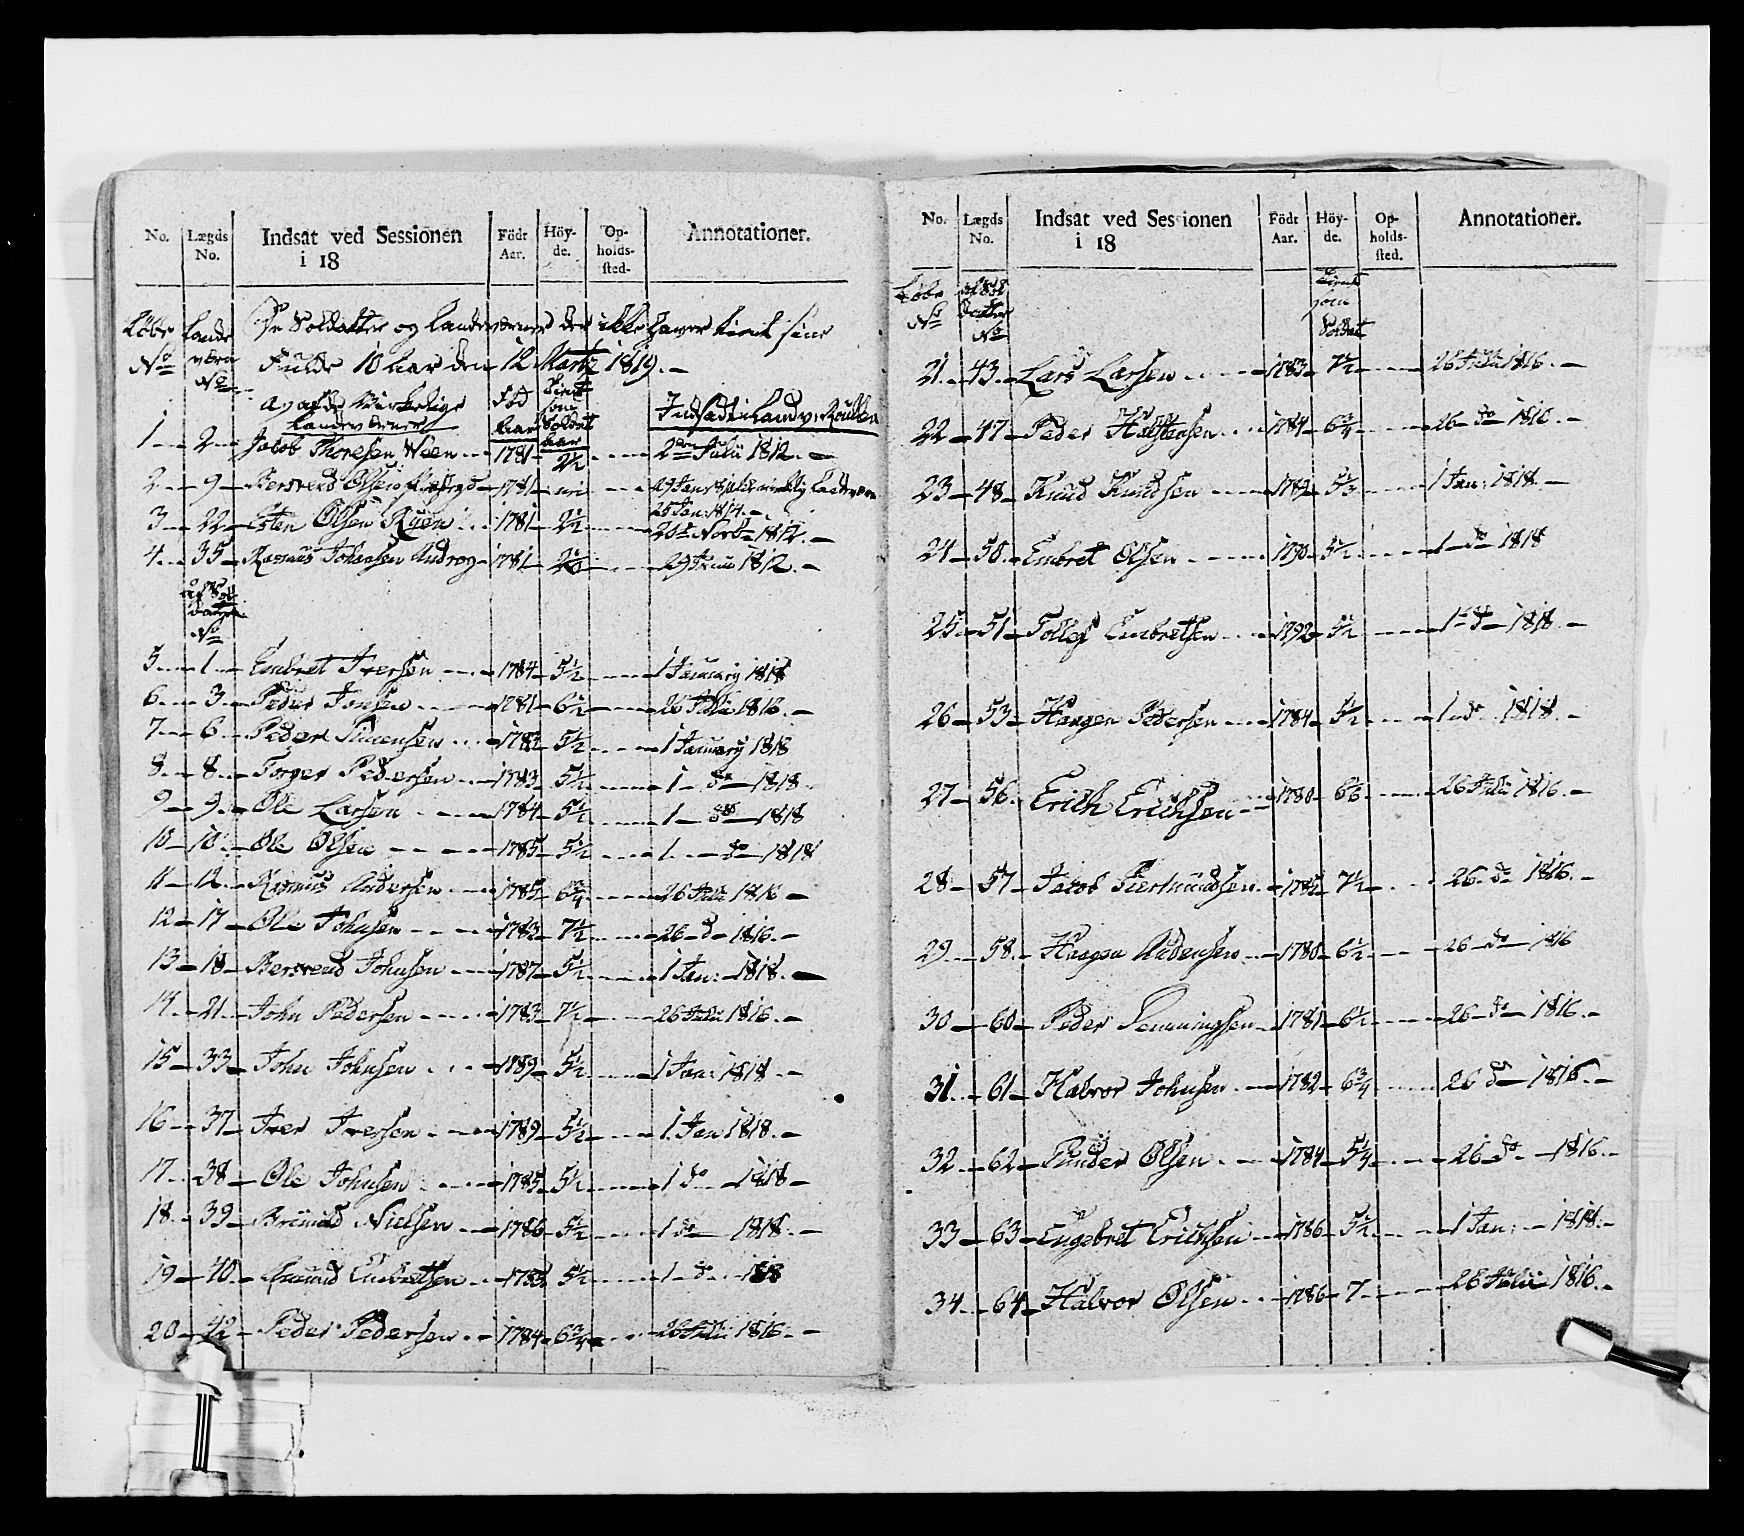 No. Lægds No. Indsat ved Sessionen i 18 Födt Aar. Höy-de. Op-holds-sted. Annotationer.
Løbe No Lande værn No De Soldatter og Landeværner der ikke haver tient sine
Fulde 10 Aar den 12 Martz 1819.
A, af de Virkelige Landeværner Fød Aar Tient som Soldat Aar Indsadt i Landv: Roullen
1 2 Jacob Thoresen Moen 1781 2½ 2den Julii 1812.
2 9 Bersvend Olsen 1781 29 Jan
25 Jan: 1814.
3 22 Esten Olsen Ruen 1781 2½ 20de Novbr 1812.
4 35 Rasmus Johansen Androg 1781 29 1812.
af Soldater No
5 1 Embret Iversen 1784 5½ 1 January 1818
6 3 Peder Jonsen 1781 6½ 26 Julii 1816.
7 6 Peder Simensen 1783 5½ 1 January 1818
8 8 Torger Pedersen 1783 5½ 1 do 1818
9 9 Ole Larsen 1784 5½ 1 do 1818
10 10 Ole Olsen 1785 5½ 1 do 1818
11 12 Rasmus Andersen 1785 6¾ 26 Julii 1816
12 17 Ole Johnsen 1783 7½ 26 do 1816.
13 18 Bersvend Johnsen 1787 5½ 1 Jan: 1818.
14 21 John Pedersen 1783 7½ 26 Julii 1816.
15 33 John Johnsen 1789 5½ 1 Jan: 1818.
16 37 Iver Iversen 1789 5½ 1. Jan 1818.
17 38 Ole Johnsen 1785 5½ 1 do 1818
18 39 Nielsen 1786 5½ 1 do 1818.
19 40 Amund Embretsen 1785 5½ 1 do 1818
20 42 Peder Pedersen 1784 6¾ 26 Julii 1816.
No. Lægds No. Indsat ved Sessionen i 18 Födt Aar. Höy-de. Op-holds-sted. Annotationer.
Løbe No No Tient som Soldat
21 43 Lars Larsen 1783 7½ 26 Julii 1816.
22 47 Peder Halstensen 1784 6¾ 26 do 1816.
23 48 Knud Knudsen 1789 1 Jan: 1818.
24 50 Embret Olsen 1790 5½ 1 do 1818
25 51 Tollef Embretsen 1792 5½ 1 do 1818.
26 53 Haagen Pedersen 1784 5½ 1 do 1818.
27 56 Erich Erichsen 1780 26 Julii 1816.
28 57 Jacob 1785 7½ 26 do 1816.
29 58 Haagen Andersen 1780 6½ 26 do 1816
30 60 Peder Hemmingsen 1781 6½ 26 do 1816.
31 61 Halvor Johnsen 1782 6¾ 26 do 1816.
32 62 Peder Olsen 1784 26 do 1816.
33 63 Engebret Erichsen 1786 5½ 1 Jan: 1818.
34 64 Halvor Olsen 1786 7 26 Julii 1816.